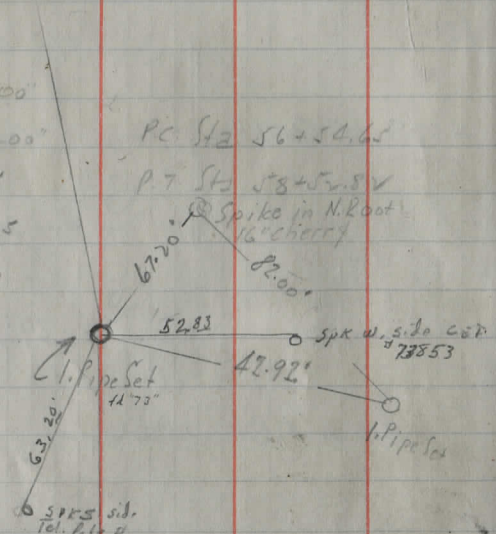 00"
00"
P.C. Sta 56+54.65
P.T. Sta 58+52.82
Spike in N. Root
16" Cherry
67.20'
82.00'
52.83
Spk W. side
73853
42.92'
I. Pipe Set
63.20'
I. Pipe Set
Spk S. side
Tel. Pole #